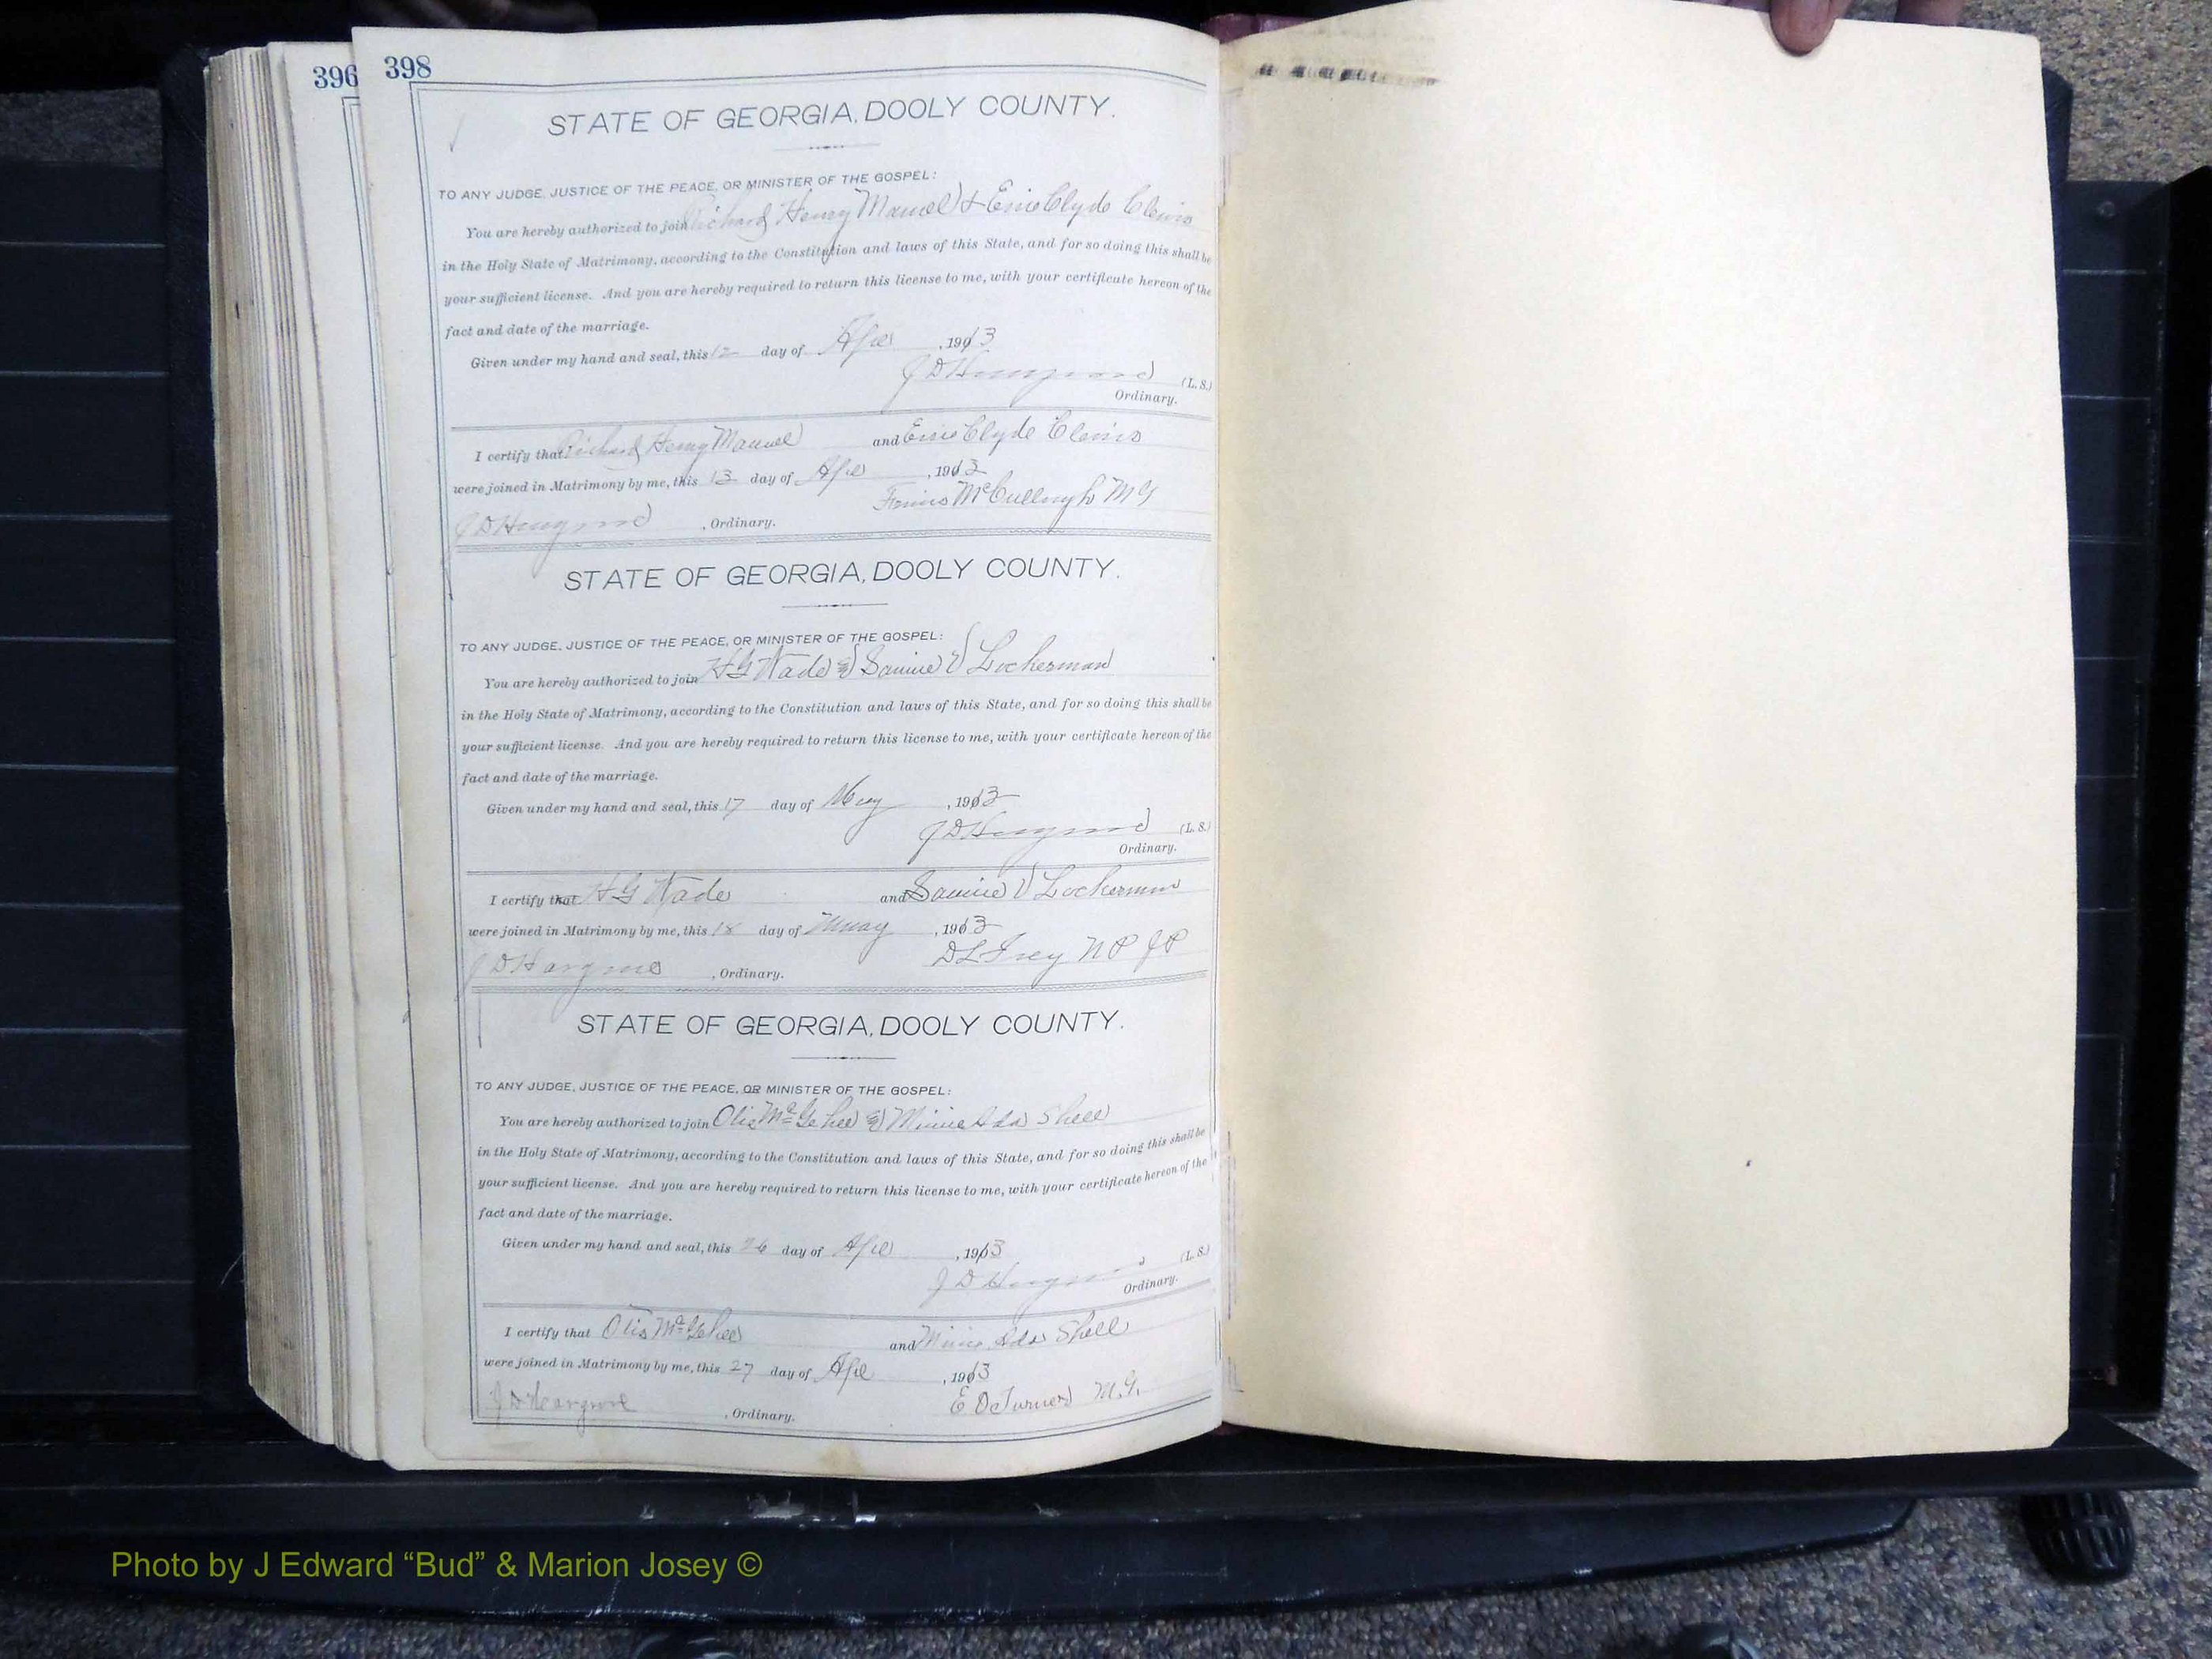 396
398
STATE OF GEORGIA, DOOLY COUNTY.
TO ANY JUDGE, JUSTICE OF THE PEACE, OR MINISTER OF THE GOSPEL:
You are hereby authorized to join Richard Henry Manuel & Clyde
in the Holy State of Matrimony, according to the Constitution and laws of this State, and for so doing this shall be
your sufficient license. And you are hereby required to return this license to me, with your certificate hereon of the
fact and date of the marriage.
Given under my hand and seal, this 12 day of Apl, 1913
J D Hargrove (L. S.)
Ordinary.
I certify that Richard Henry Manuel and Clyde
were joined in Matrimony by me, this 13 day of Apl, 1913
McCullough M G
J D Hargrove, Ordinary.
STATE OF GEORGIA, DOOLY COUNTY.
TO ANY JUDGE, JUSTICE OF THE PEACE, OR MINISTER OF THE GOSPEL:
You are hereby authorized to join H G Wade & V Lockerman
in the Holy State of Matrimony, according to the Constitution and laws of this State, and for so doing this shall be
your sufficient license. And you are hereby required to return this license to me, with your certificate hereon of the
fact and date of the marriage.
Given under my hand and seal, this 17 day of May, 1913
J D Hargrove (L. S.)
Ordinary.
I certify that H G Wade and V Lockerman
were joined in Matrimony by me, this 18 day of May, 1913
D L Frey N P J P
J D Hargrove, Ordinary.
STATE OF GEORGIA, DOOLY COUNTY.
TO ANY JUDGE, JUSTICE OF THE PEACE, OR MINISTER OF THE GOSPEL:
You are hereby authorized to join Otis McGehee & Minnie Ada Shell
in the Holy State of Matrimony, according to the Constitution and laws of this State, and for so doing this shall be
your sufficient license. And you are hereby required to return this license to me, with your certificate hereon of the
fact and date of the marriage.
Given under my hand and seal, this 26 day of Apl, 1913
J D Hargrove (L. S.)
Ordinary.
I certify that Otis McGehee and Minnie Ada Shell
were joined in Matrimony by me, this 27 day of Apl, 1913
E O Turner M.G.
J D Hargrove, Ordinary.
Photo by J Edward “Bud” & Marion Josey ©